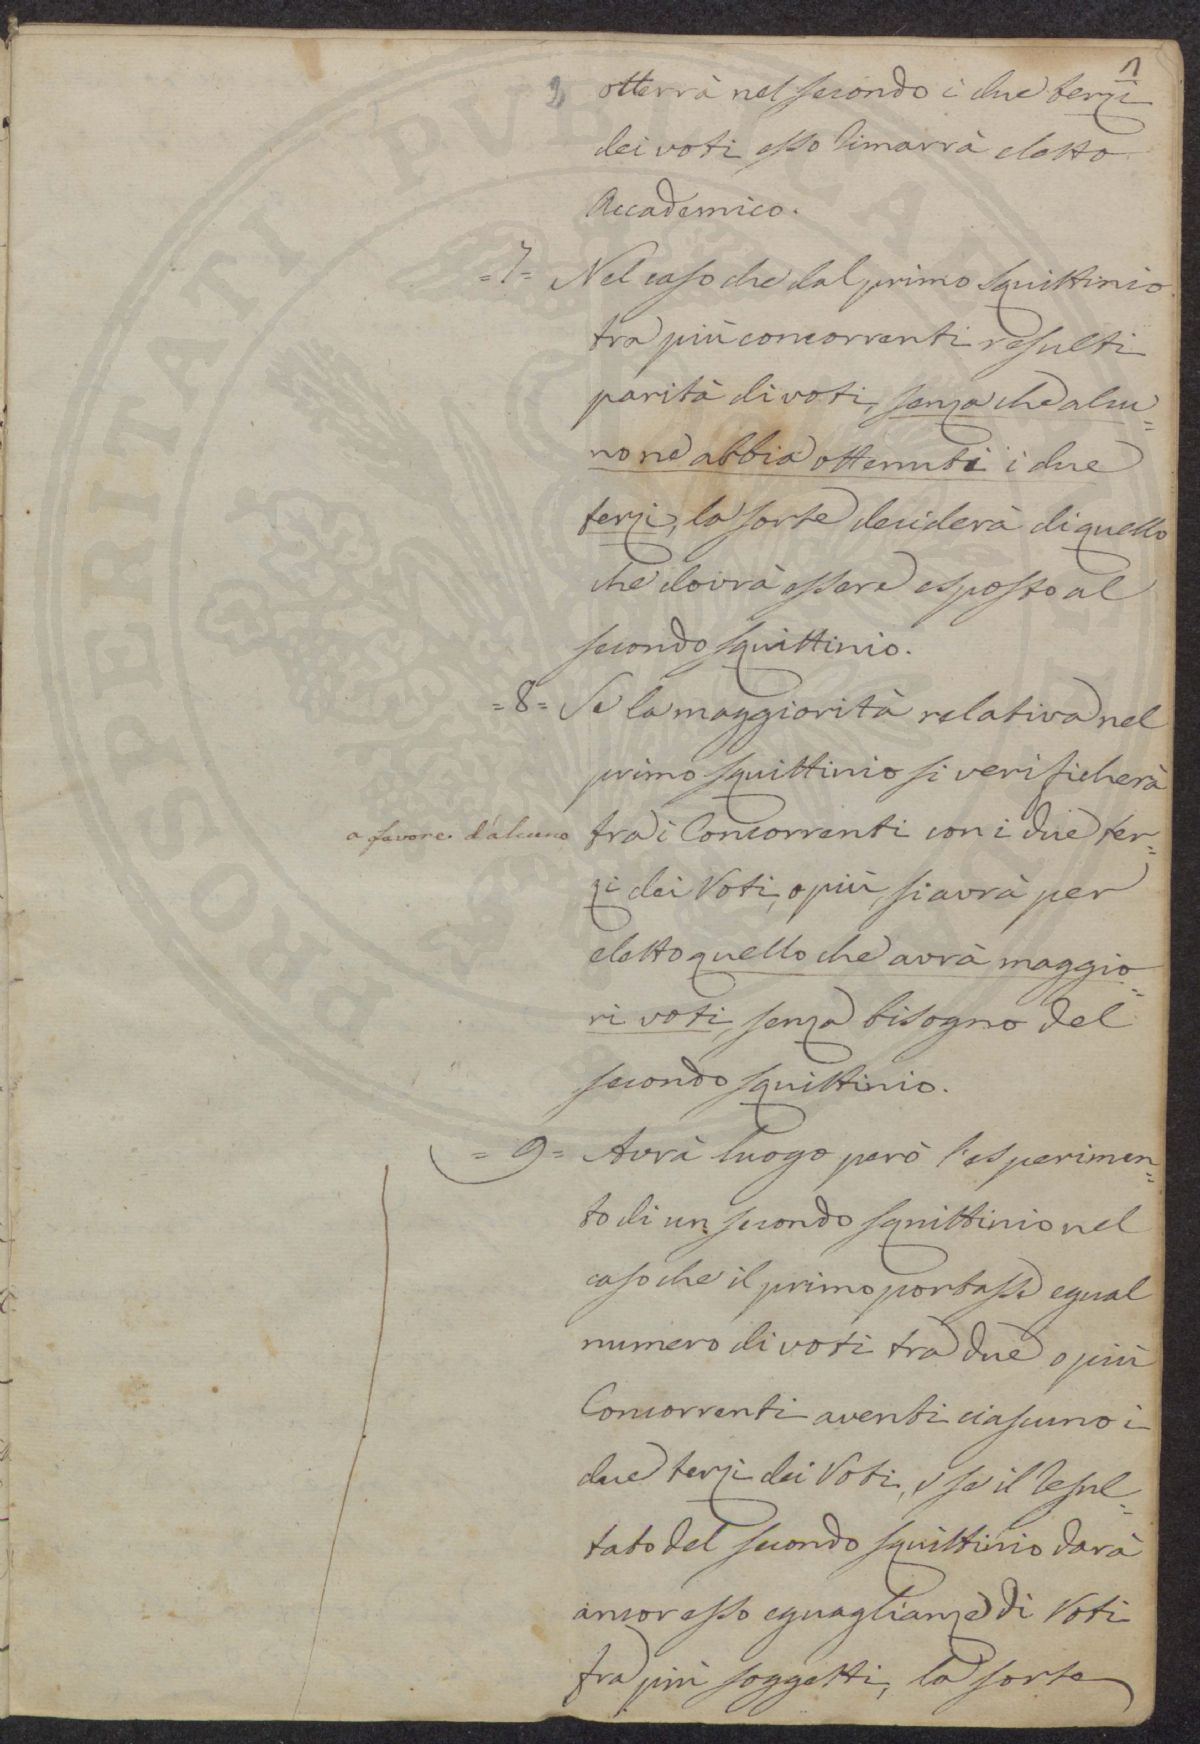 1
otterrà nel secondo i due terzi
dei voti esso rimarrà eletto
Accademico.
=7= Nel caso che dal primo squittinio
tra più concorrenti resulti
parità di voti, senza che alcu=
no ne abbia ottenuti i due
terzi, la sorte deciderà di quello
che dovrà essere esposto al
secondo squittinio.
=8= Se la maggiorità relativa nel
primo squittinio si verificherà
a favore d'alcuno
fra i Concorrenti con i due ter=
zi dei Voti, o più, si avrà per
eletto quello che avrà maggio=
ri voti, senza bisogno del
secondo squittinio.
=9= Avrà luogo però l'esperimen=
to di un secondo squittinio nel
caso che il primo portasse egual
numero di voti tra due o più
Concorrenti aventi ciascuno i
due terzi dei Voti, e se il resul=
tato del secondo squittinio darà
ancor esso eguaglianza di Voti
fra più soggetti, la sorte